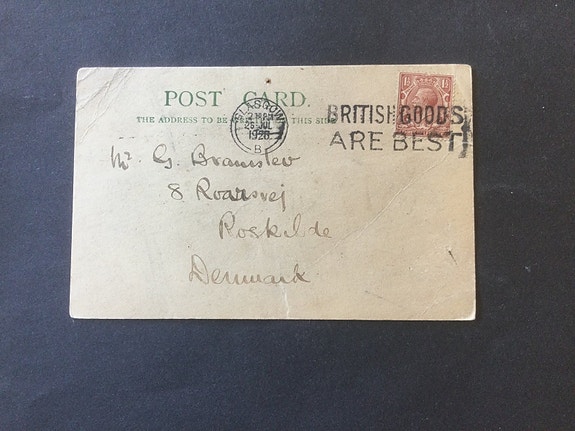 POST CARD.
THE ADDRESS TO BE THIS SIDE
GLASGOW
26 JUL
1926
B
BRITISH GOODS
ARE BEST
Mr G. Bramslev
8 Roarsvej
Roskilde
Denmark